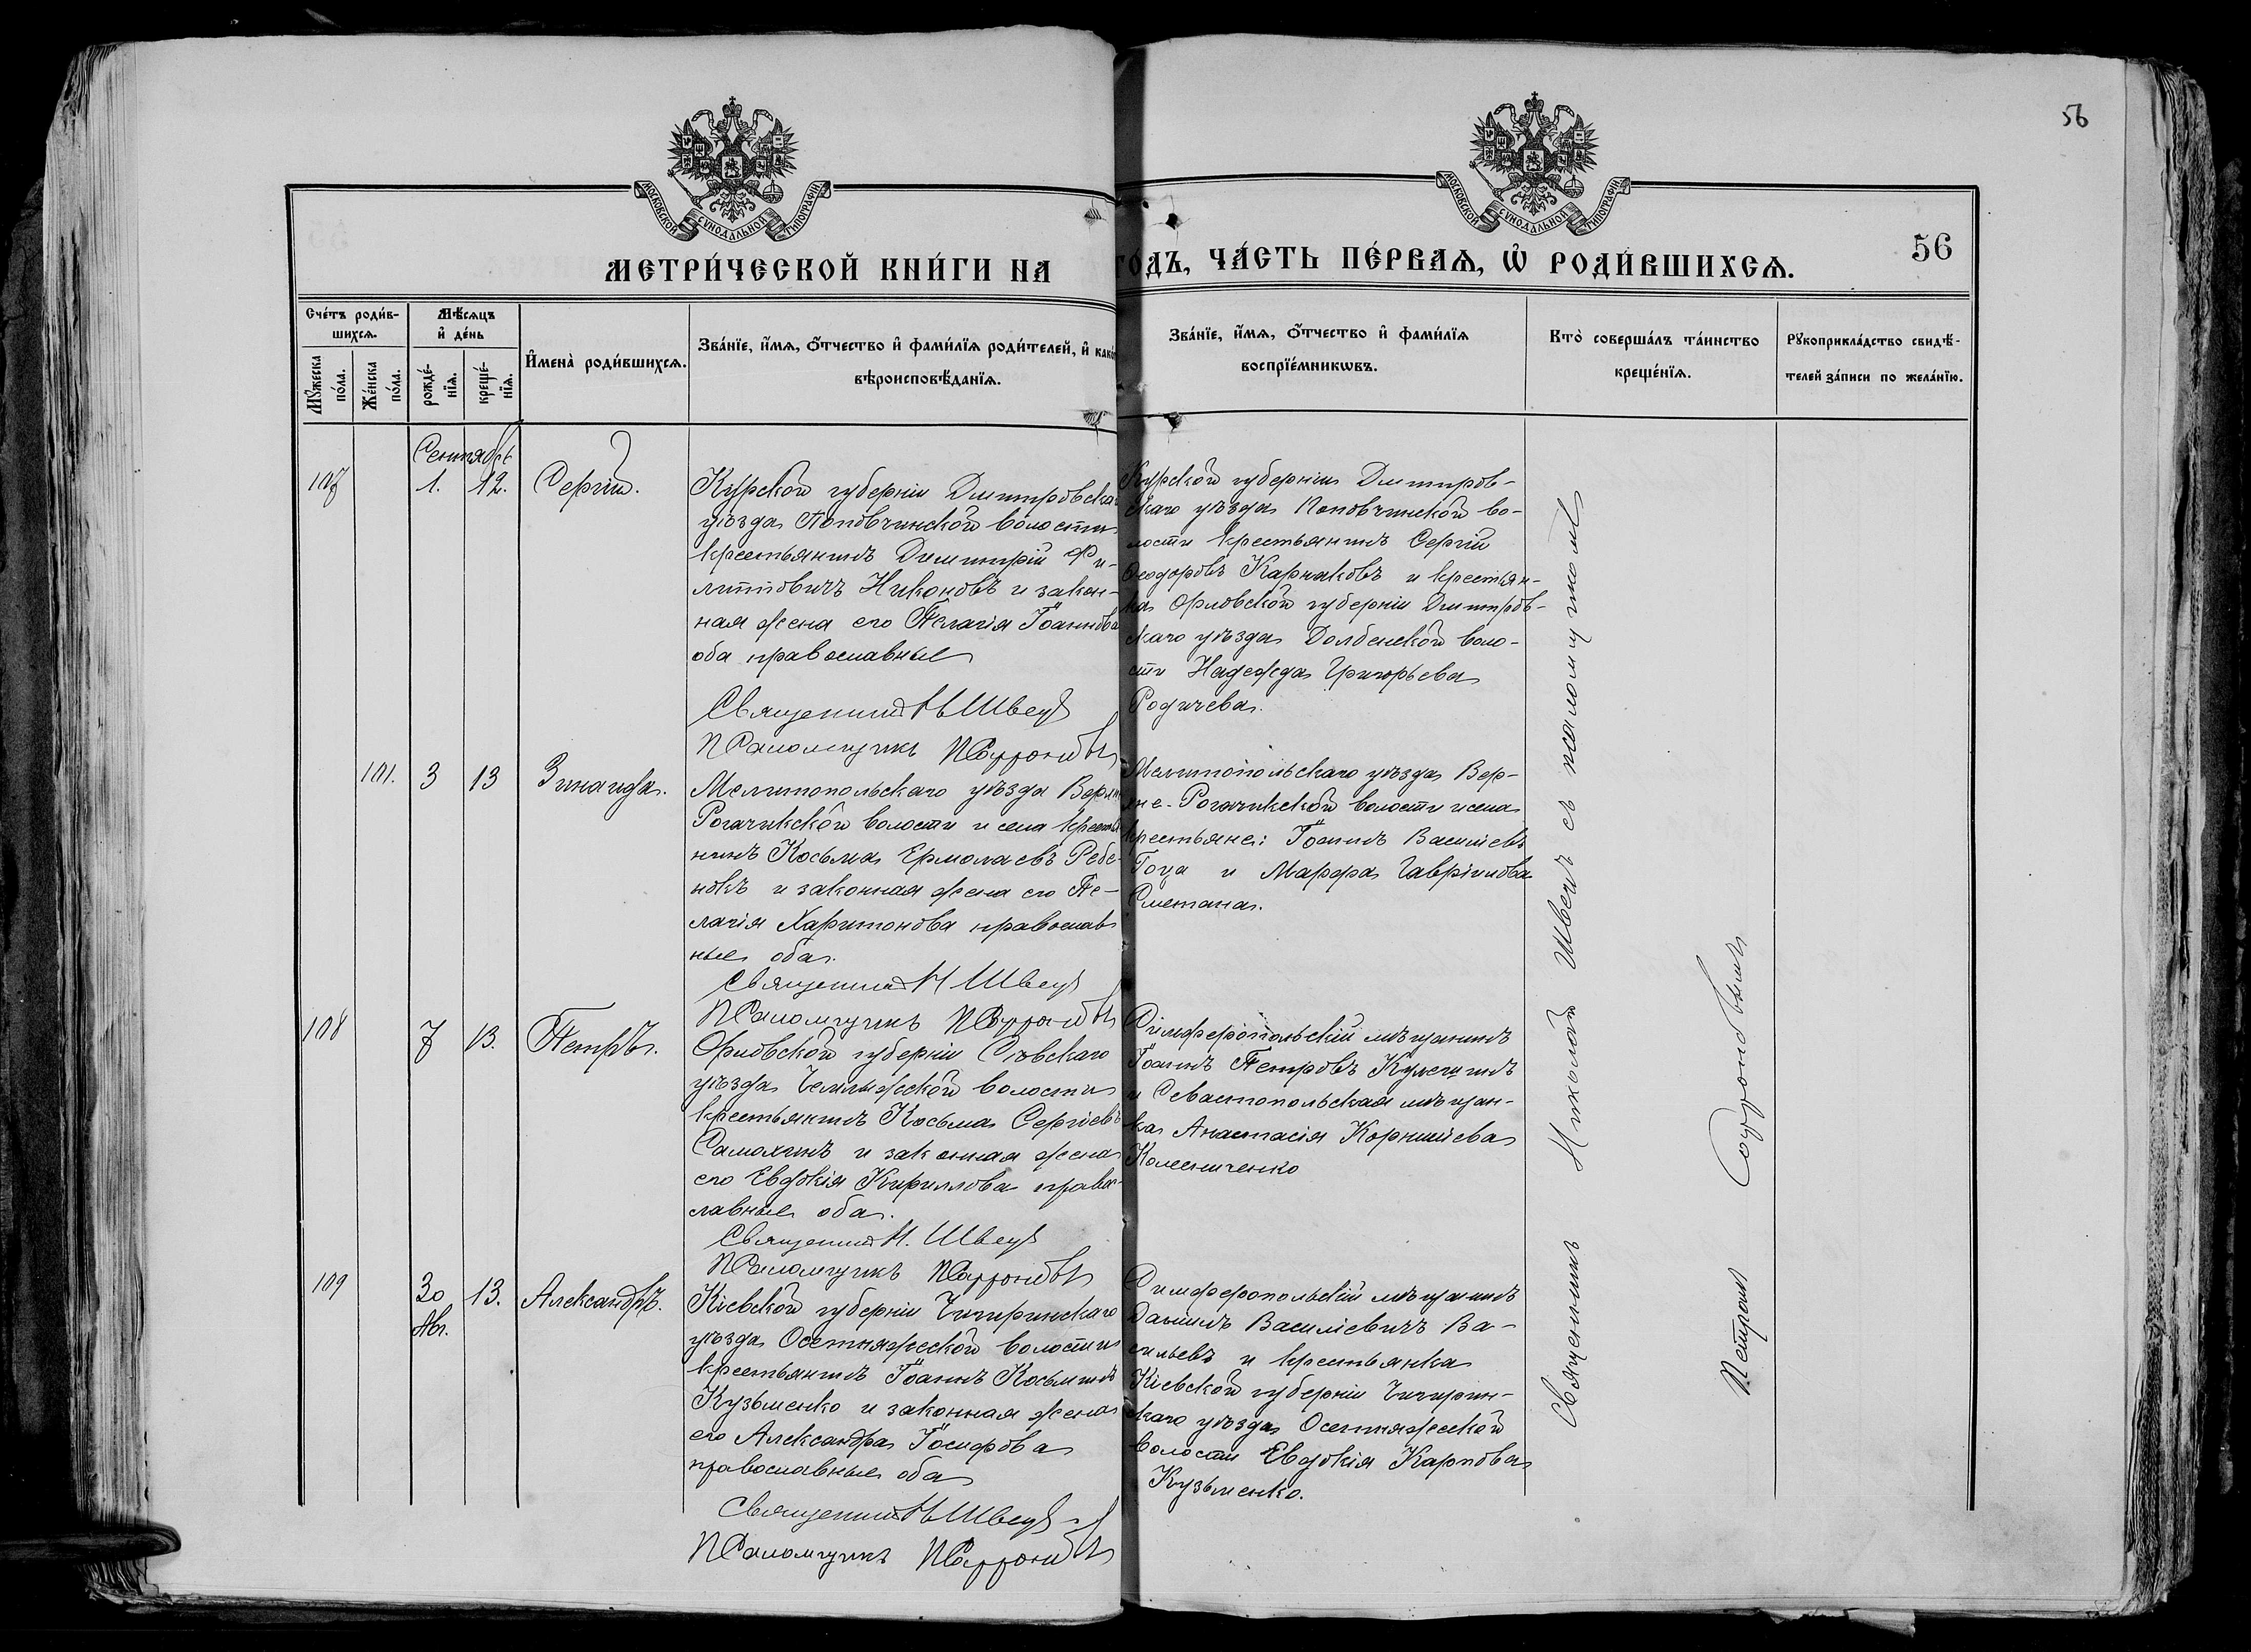 56
МОСКОВСКОЙ СУНОДАЛЬНОЙ ТИПОГРАФІИ
МОСКОВСКОЙ СУНОДАЛЬНОЙ ТИПОГРАФІИ
МЕТРИ́ЧЕСКОЙ КНИ́ГИ НА
ГО́ДЪ, ЧА́СТЬ ПЕ́РВАѦ, Ѡ҆ РОДИ́ВШИХСѦ.
56
Сче́тъ роди́в-
шихсѧ.
Мꙋ́жеска по́ла.
Же́нска по́ла.
Мѣ́сѧцъ
и҆ де́нь
рожде́-
нїѧ.
креще́-
нїѧ.
И҆мена̀ роди́вшихсѧ.
Зва́нїе, и҆́мѧ, ѻ҆́тчество и҆ фами́лїѧ роди́телей, и҆ како́
вѣроисповѣ́данїѧ.
Зва́нїе, и҆́мѧ, ѻ҆́тчество и҆ фами́лїѧ
воспрїе́мникѡвъ.
Кто̀ соверша́лъ та́инство
креще́нїѧ.
Рꙋкоприкла́дство свидѣ́-
телей за́писи по жела́нїю.
Сентябрь
107
1.
12.
Сергій.
Курской губерніи Дмитровска
уѣзда Поповчинской волости
крестьянинъ Димитрій Фи-
липповичъ Никоновъ и закон-
ная жена его Пелагія Іоаннова
оба православные
Священник Н Швец
Псаломщикъ П Софронов
Курской губерніи Дмитров-
скаго уѣзда Поповчинской во-
лости крестьянинъ Сергій
Ѳеодоровъ Карнаковъ и крестьян-
ка Орловской губерніи Дмитров-
скаго уѣзда Долбенской воло-
сти Надежда Григорьева
Родичева.
101.
3
13
Зинаида.
Мелитопольскаго уѣзда Верхне
Рогачикской волости и села крестья
нинъ Косьма Ермолаевъ Ребе-
нокъ и законная жена его Пе-
лагія Харитонова православ
ные оба.
Священник Н Швец
Псаломщикъ П Софронов
Мелитопольскаго уѣзда Вер-
хне-Рогачикской волости и села
крестьяне: Іоаннъ Василіевъ
Гоца и Марѳа Гавріилова
Сметана.
108
7
13.
Петръ.
Орловской губерніи Сѣвскаго
уѣзда Чемлыжской волости
крестьянинъ Косьма Сергіевъ
Самохинъ и законная жена
его Евдокія Кириллова право-
славные оба.
Священник Н. Швец
Псаломщикъ П Софронов
Симферопольскій мѣщанинъ
Іоаннъ Петровъ Кулешинъ
и Севастопольская мѣщан-
ка Анастасія Корнилиева
Колесниченко
109
30
Авг.
13.
Александръ.
Кіевской губерніи Чигиринскаго
уѣзда Осетняжской волости
крестьянинъ Іоаннъ Косьминъ
Кузьменко и законная жена
его Александра Іосифова
православные оба
Священник Н Швец
Псаломщикъ П Софронов
Симферопольскій мѣщанинъ
Даніилъ Василіевичъ Ва-
сильевъ и крестьянка
Кіевской губерніи Чигирин-
скаго уѣзда Осетняжской
волости Евдокія Карпова
Кузьменко.
Священникъ Николай Швецъ съ псаломщикомъ
Петромъ Софроновымъ